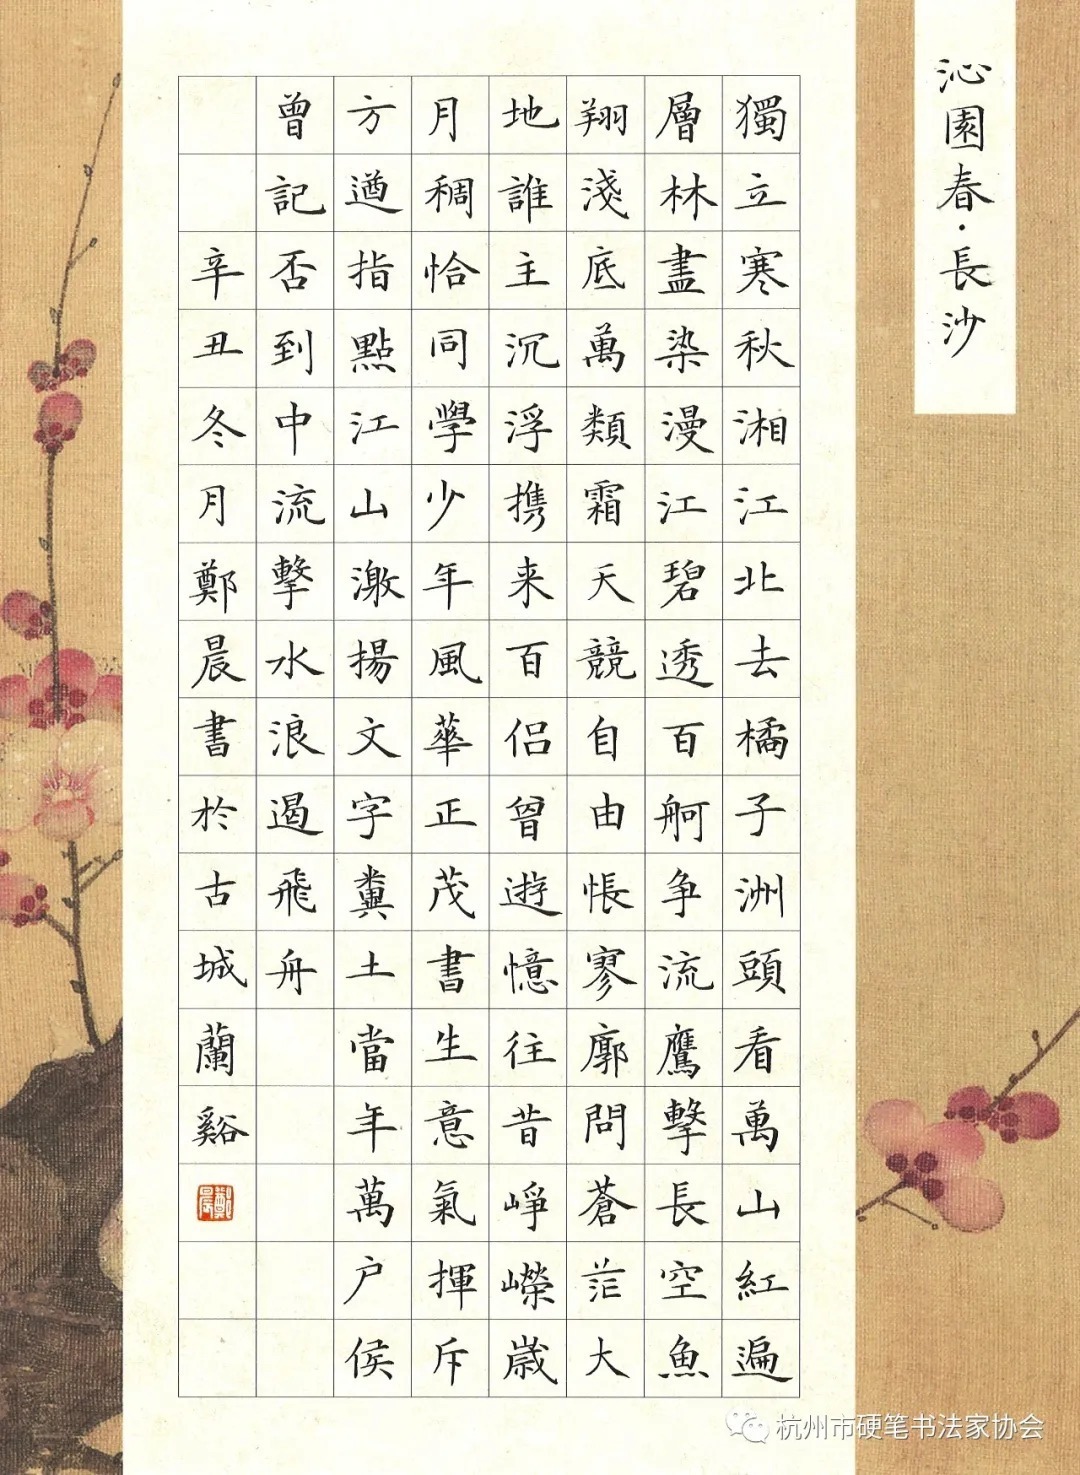 沁園春·長沙
獨立寒秋湘江北去橘子洲頭看萬山紅遍
層林盡染漫江碧透百舸争流鷹擊長空魚
翔淺底萬類霜天競自由悵寥廓問蒼茫大
地誰主沉浮携来百侣曾遊憶往昔崢嶸歲
月稠恰同學少年風華正茂書生意氣揮斥
方遒指點江山激揚文字糞土當年萬户侯
曾記否到中流擊水浪遏飛舟
辛丑冬月鄭晨書於古城蘭谿
鄭晨
杭州市硬笔书法家协会